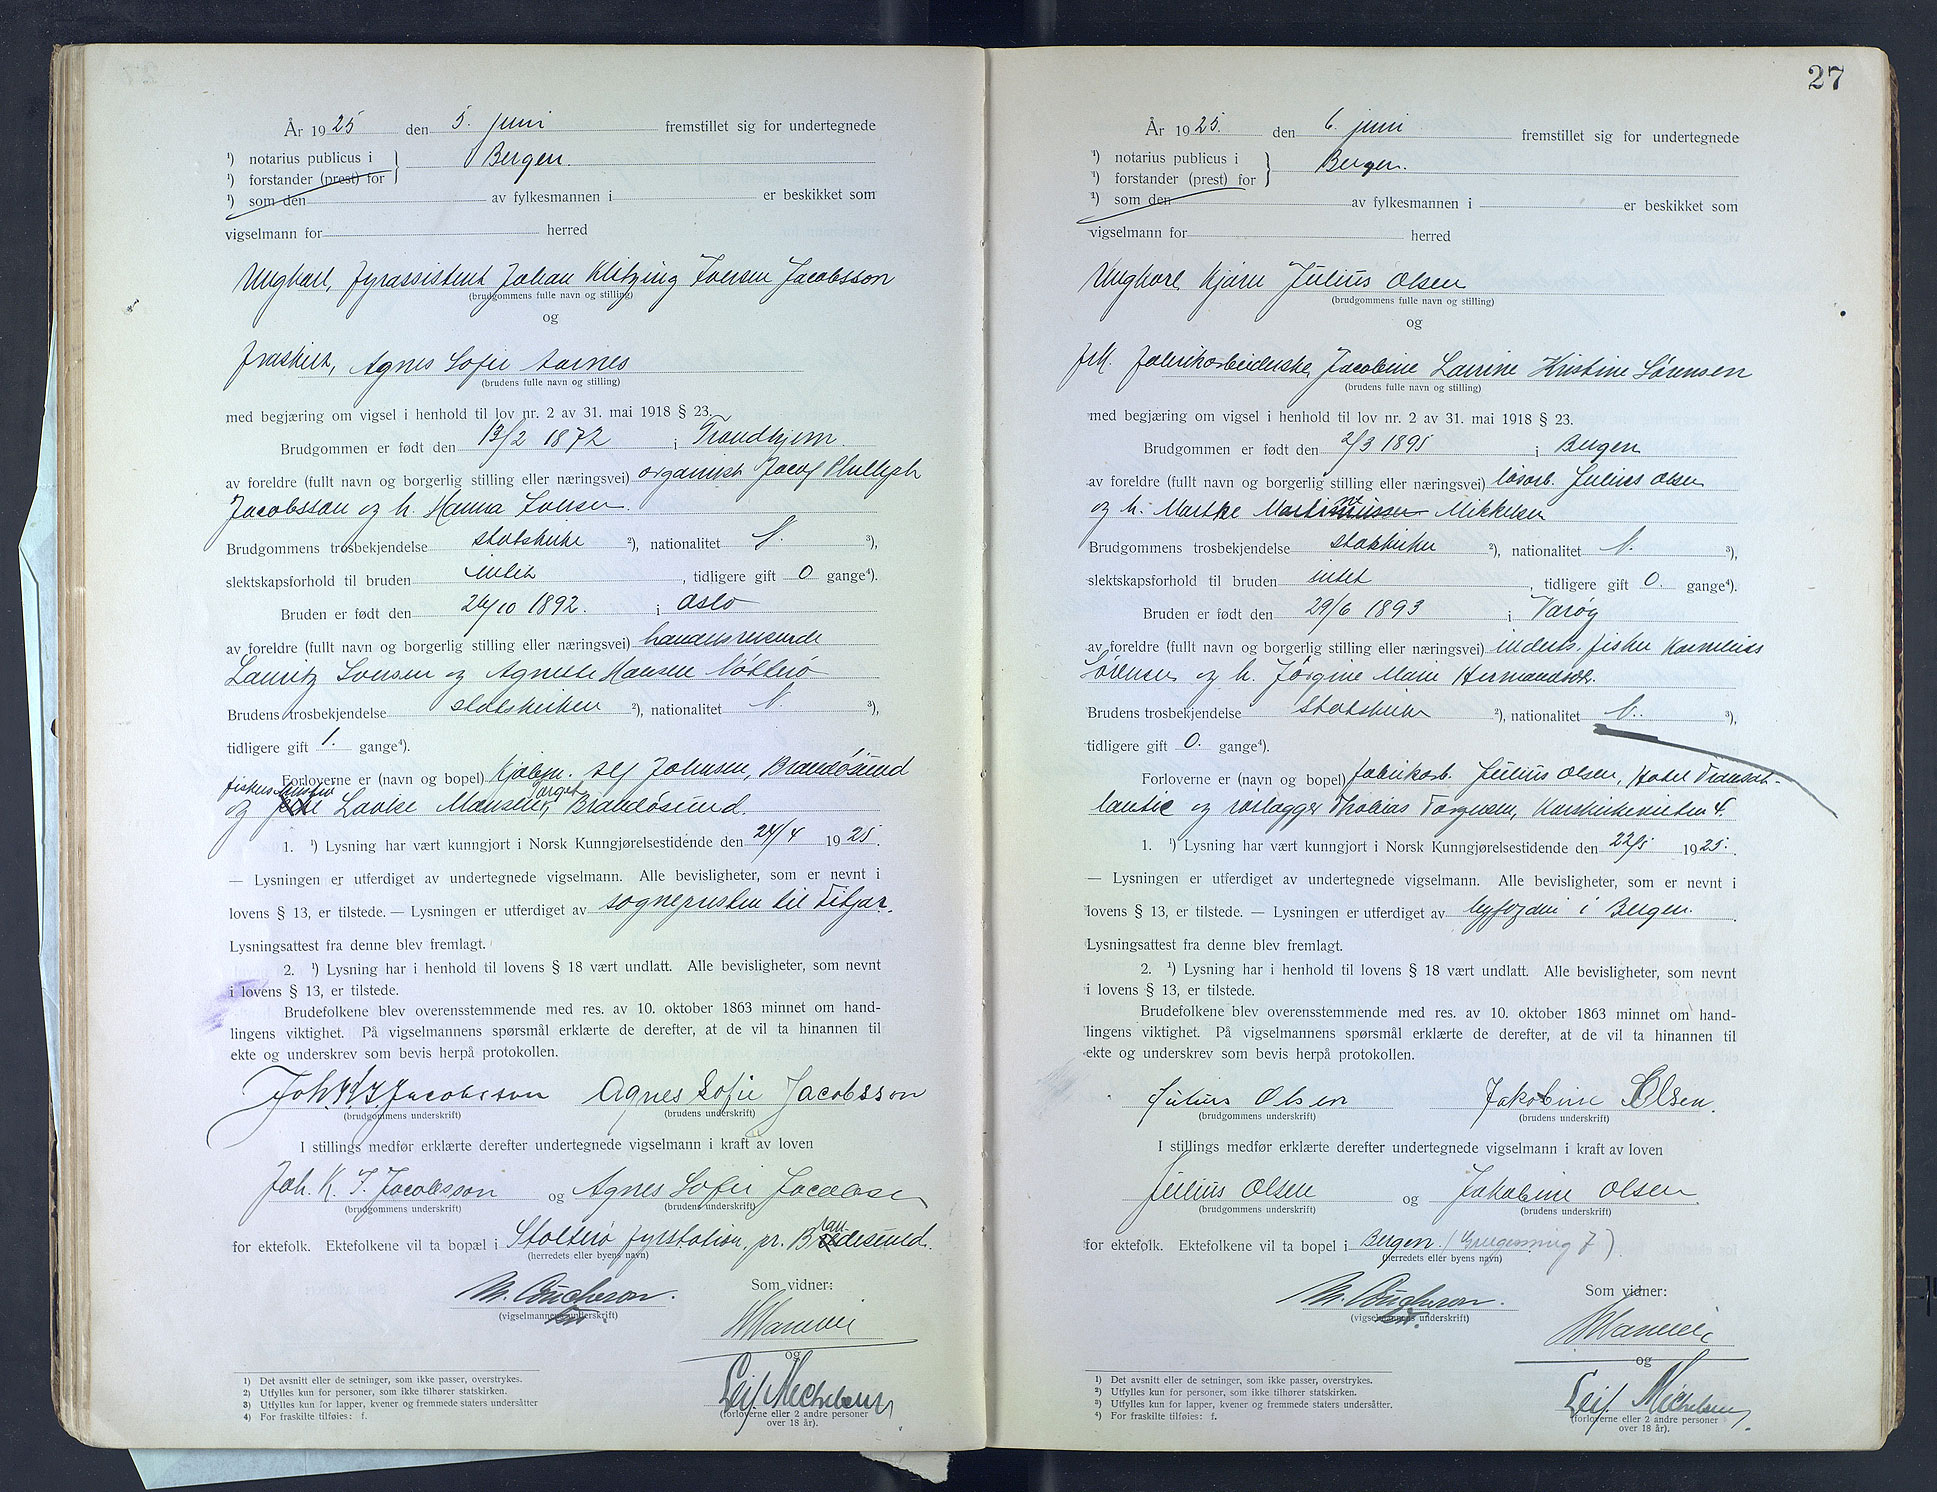 År 1925 den 5. juni fremstillet sig for undertegnede
¹) notarius publicus i } Bergen.
¹) forstander (prest) for
¹) som den av fylkesmannen i er beskikket som
vigselmann for herred
Ungkarl, fyrassistent Johan Klitzing Iversen Jacobsson
(brudgommens fulle navn og stilling)
og
fraskilt, Agnes Sofie Aarnes
(brudens fulle navn og stilling)
med begjæring om vigsel i henhold til lov nr. 2 av 31. mai 1918 § 23.
Brudgommen er født den 13/2 1872 i Trondhjem.
av foreldre (fullt navn og borgerlig stilling eller næringsvei) organist Jacob
Jacobsson og h. Hanna Iversen.
Brudgommens trosbekjendelse statskirke ²), nationalitet N. ³),
slektskapsforhold til bruden intet, tidligere gift 0 gange⁴).
Bruden er født den 1892. i Oslo
av foreldre (fullt navn og borgerlig stilling eller næringsvei) handelsreisende
Lauritz Iversen og Agnete Hansen Nøtterø
Brudens trosbekjendelse statskirken ²), nationalitet N. ³),
tidligere gift 1. gange⁴).
Forloverne er (navn og bopel) Alf Johnsen, Brandøsund
og Lovise Brandøsund.
1. ¹) Lysning har vært kunngjort i Norsk Kunngjørelsestidende den 24/4 1925.
— Lysningen er utferdiget av undertegnede vigselmann. Alle bevisligheter, som er nevnt i
lovens § 13, er tilstede. — Lysningen er utferdiget av sognepresten til Fitjar.
Lysningsattest fra denne blev fremlagt.
2. ¹) Lysning har i henhold til lovens § 18 vært undlatt. Alle bevisligheter, som nevnt
i lovens § 13, er tilstede.
Brudefolkene blev overensstemmende med res. av 10. oktober 1863 minnet om hand-
lingens viktighet. På vigselmannens spørsmål erklærte de derefter, at de vil ta hinannen til
ekte og underskrev som bevis herpå protokollen.
Joh. K. I. Jacobsson Agnes Sofie Jacobsson
(brudgommens underskrift) (brudens underskrift)
I stillings medfør erklærte derefter undertegnede vigselmann i kraft av loven
Joh. K. I. Jacobsson og Agnes Sofie Jacobsson
(brudgommens underskrift) (brudens underskrift)
for ektefolk. Ektefolkene vil ta bopæl i fyrstation, pr. Brandesund.
(herredets eller byens navn)
Som vidner:
(vigselmannens underskrift)
og
Leif Michelsen
(forloverne eller 2 andre personer
over 18 år).
1) Det avsnitt eller de setninger, som ikke passer, overstrykes.
2) Utfylles kun for personer, som ikke tilhører statskirken.
3) Utfylles kun for lapper, kvener og fremmede staters undersåtter
4) For fraskilte tilføies: f.
27
År 1925. den 6. juni fremstillet sig for undertegnede
¹) notarius publicus i } Bergen.
¹) forstander (prest) for
¹) som den av fylkesmannen i er beskikket som
vigselmann for herred
Ungkarl Julius Olsen
(brudgommens fulle navn og stilling)
og
frk. fabrikarbeiderske Jacobine Laurine Kristine Sørensen
(brudens fulle navn og stilling)
med begjæring om vigsel i henhold til lov nr. 2 av 31. mai 1918 § 23.
Brudgommen er født den 2/3 1895 i Bergen
av foreldre (fullt navn og borgerlig stilling eller næringsvei) løsarb. Julius Olsen
og h. Marthe Mikkelsen
Brudgommens trosbekjendelse statskirken ²), nationalitet N. ³),
slektskapsforhold til bruden intet, tidligere gift 0. gange⁴).
Bruden er født den 29/6 1893 i Værøy
av foreldre (fullt navn og borgerlig stilling eller næringsvei) fisker Kornelius
Sørensen og h. Jørgine Marie
Brudens trosbekjendelse statskirke ²), nationalitet N. ³),
tidligere gift 0. gange⁴).
Forloverne er (navn og bopel) fabrikarb. Julius Olsen, Hotel Transat-
lantic og rørlægger Thobias Torgersen, Korskirkeveiten 4.
1. ¹) Lysning har vært kunngjort i Norsk Kunngjørelsestidende den 22/5 1925.
— Lysningen er utferdiget av undertegnede vigselmann. Alle bevisligheter, som er nevnt i
lovens § 13, er tilstede. — Lysningen er utferdiget av byfogden i Bergen.
Lysningsattest fra denne blev fremlagt.
2. ¹) Lysning har i henhold til lovens § 18 vært undlatt. Alle bevisligheter, som nevnt
i lovens § 13, er tilstede.
Brudefolkene blev overensstemmende med res. av 10. oktober 1863 minnet om hand-
lingens viktighet. På vigselmannens spørsmål erklærte de derefter, at de vil ta hinannen til
ekte og underskrev som bevis herpå protokollen.
Julius Olsen Jakobine Olsen.
(brudgommens underskrift) (brudens underskrift)
I stillings medfør erklærte derefter undertegnede vigselmann i kraft av loven
Julius Olsen og Jakobine Olsen
(brudgommens underskrift) (brudens underskrift)
for ektefolk. Ektefolkene vil ta bopel i Bergen
(herredets eller byens navn)
Som vidner:
(vigselmannens underskrift)
og
Leif Michelsen
(forloverne eller 2 andre personer
over 18 år).
1) Det avsnitt eller de setninger, som ikke passer, overstrykes.
2) Utfylles kun for personer, som ikke tilhører statskirken.
3) Utfylles kun for lapper, kvener og fremmede staters undersåtter.
4) For fraskilte tilføies: f.